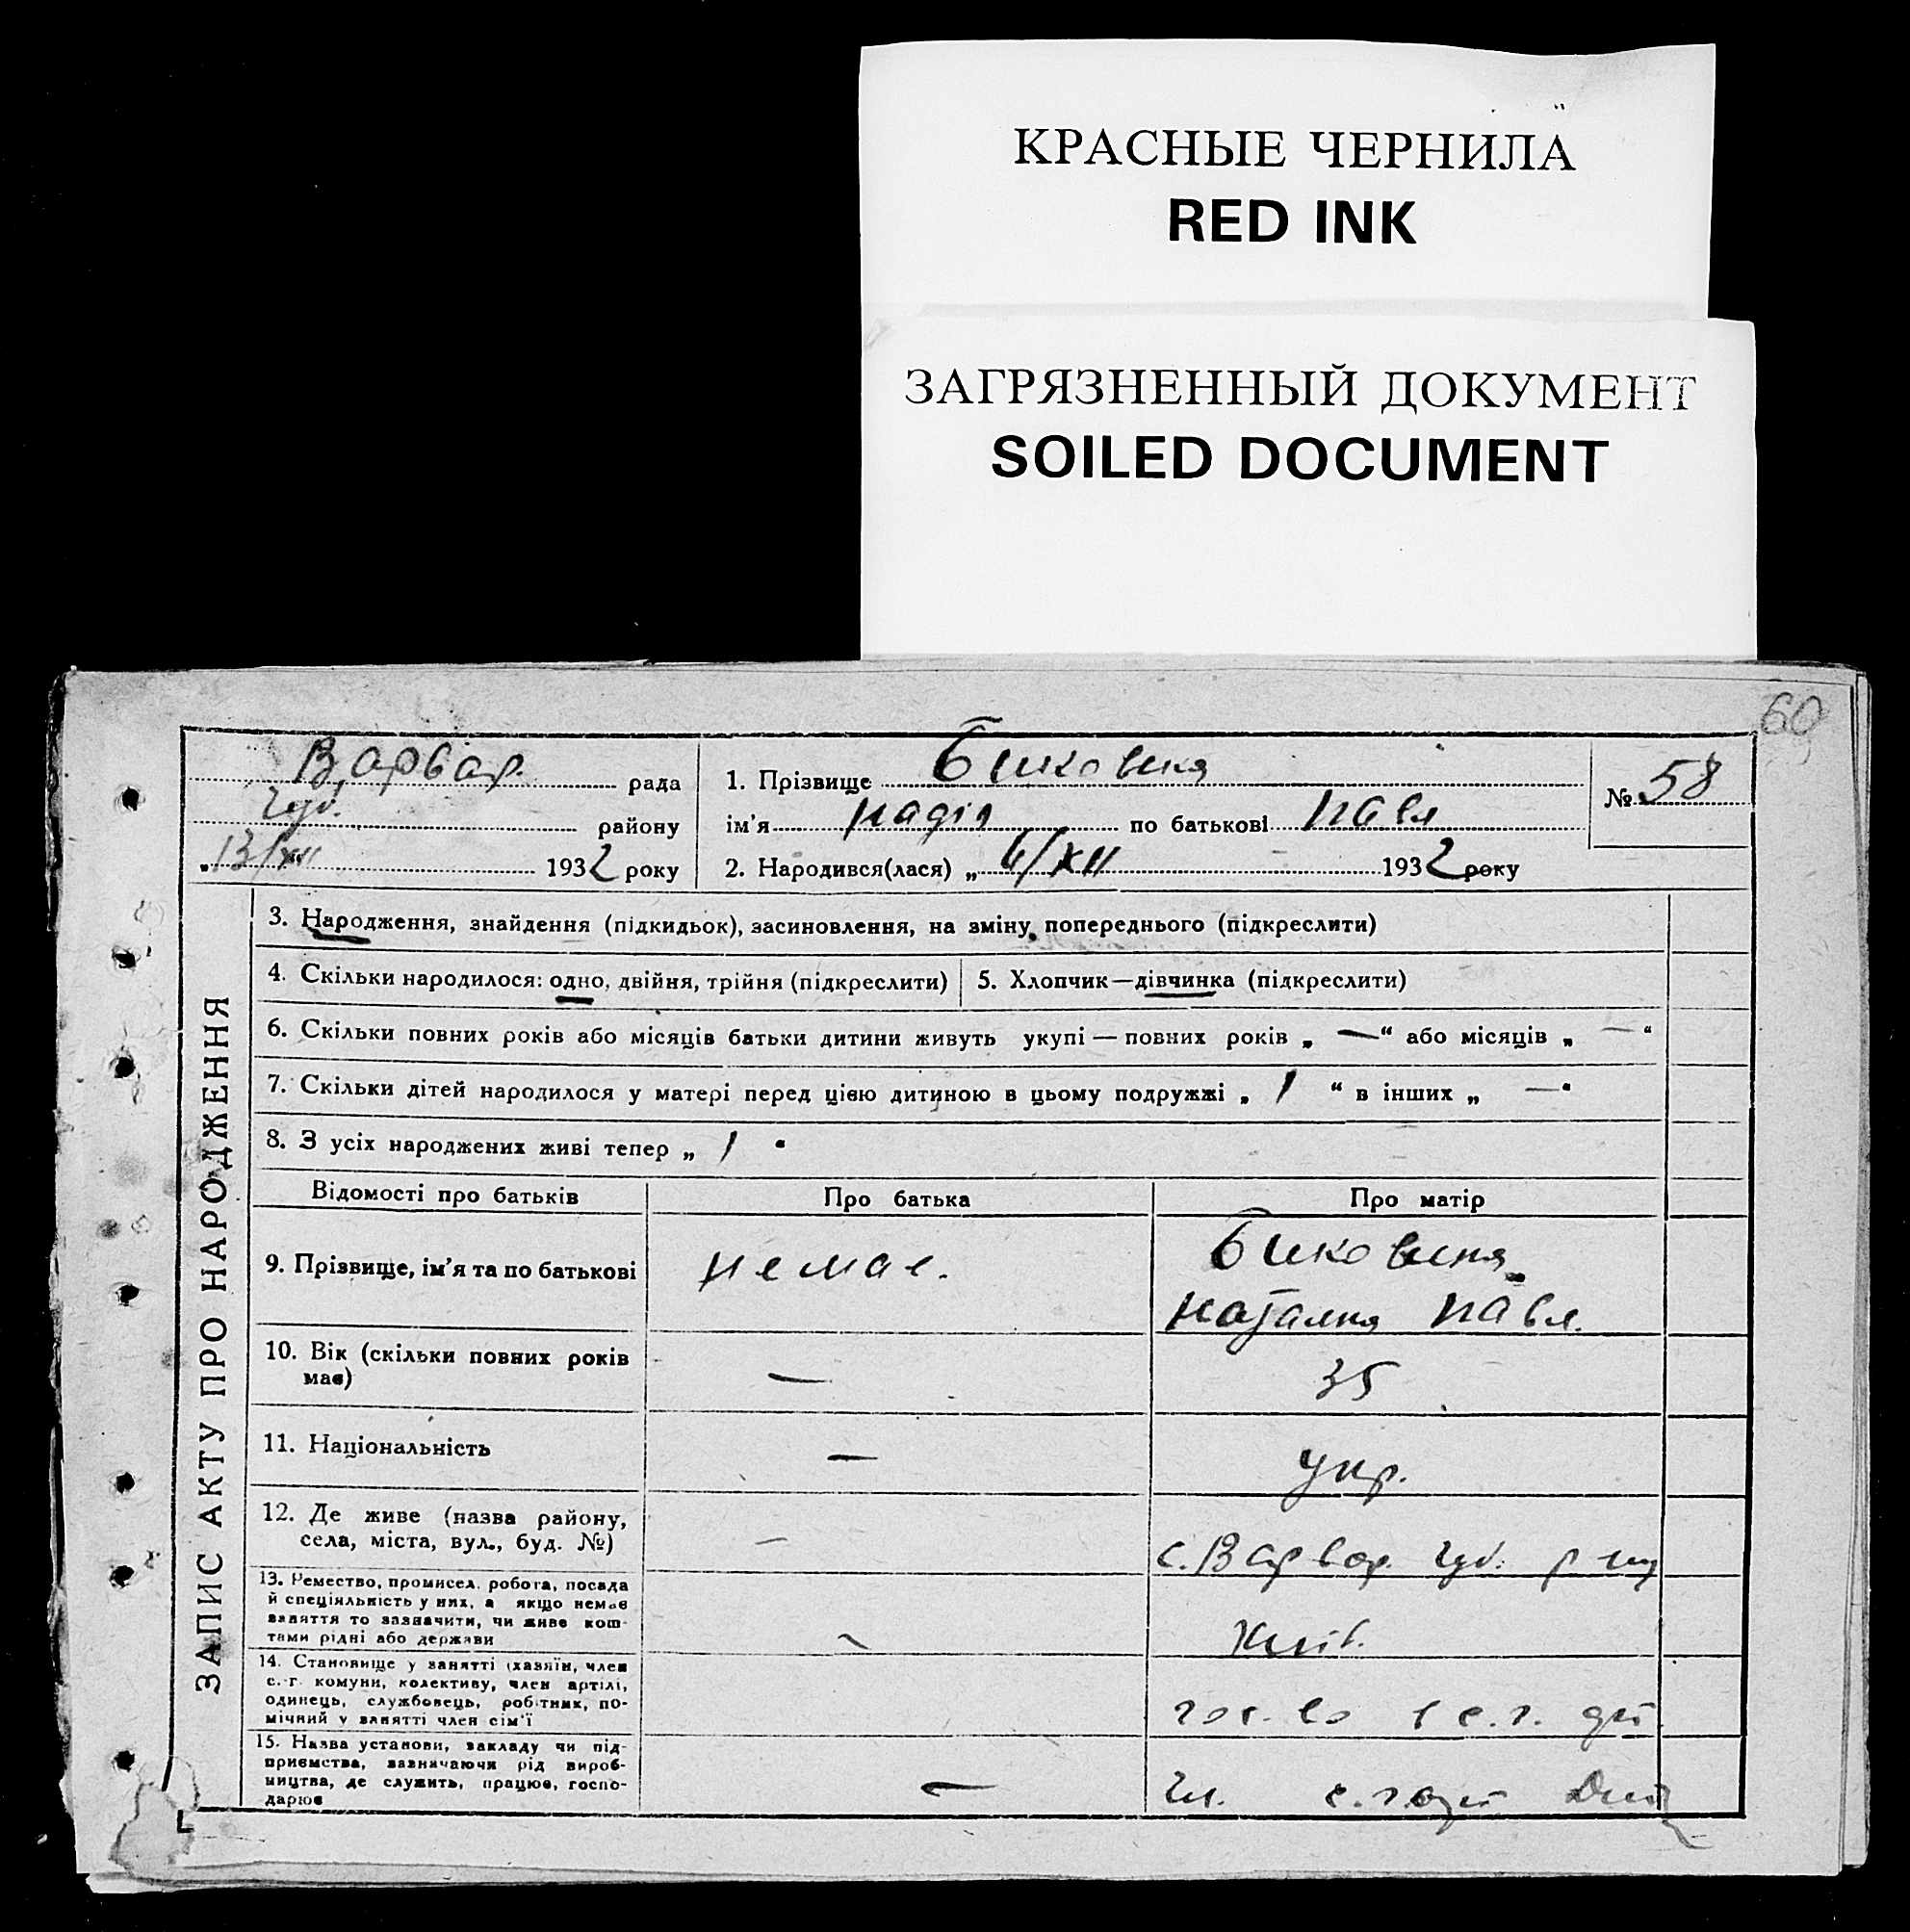 КРАСНЫЕ ЧЕРНИЛА
RED INK
ЗАГРЯЗНЕННЫЙ ДОКУМЕНТ
SOILED DOCUMENT
60
Варвар. рада
району
„13/XII 1932 року
1. Прізвище Биковиня
ім'я Надія по батькові Павл
2. Народився(лася) „ 6/XII 1932 року
№ 58
ЗАПИС АКТУ ПРО НАРОДЖЕННЯ
3. Народження, знайдення (підкидьок), засиновлення, на зміну попереднього (підкреслити)
4. Скільки народилося: одно, двійня, трійня (підкреслити)
5. Хлопчик—дівчинка (підкреслити)
6. Скільки повних років або місяців батьки дитини живуть укупі — повних років „ — “ або місяців „ — “
7. Скільки дітей народилося у матері перед цією дитиною в цьому подружжі „ 1 “ в інших „ — “
8. З усіх народжених живі тепер „ 1 “
Відомості про батьків Про батька Про матір
9. Прізвище, ім'я та по батькові немає. Биковиня
Наталия Павл.
10. Вік (скільки повних років
має) — 35
11. Національність — укр.
12. Де живе (назва району,
села, міста, вул., буд. №) — с. Варвар.
13. Ремество, промисел, робота, посада
й спеціяльність у них, а якщо немає
заняття то зазначити, чи живе кош-
тами рідні або держави —
14. Становище у занятті (хазяїн, член
с.-г. комуни, колективу, член артілі,
одинець, службовець, робітник, по-
мічний у занятті член сім'ї
15. Назва установи, закладу чи під-
приємства, зазначаючи рід вироб-
ництва, де служить, працює, госпо-
дарює —